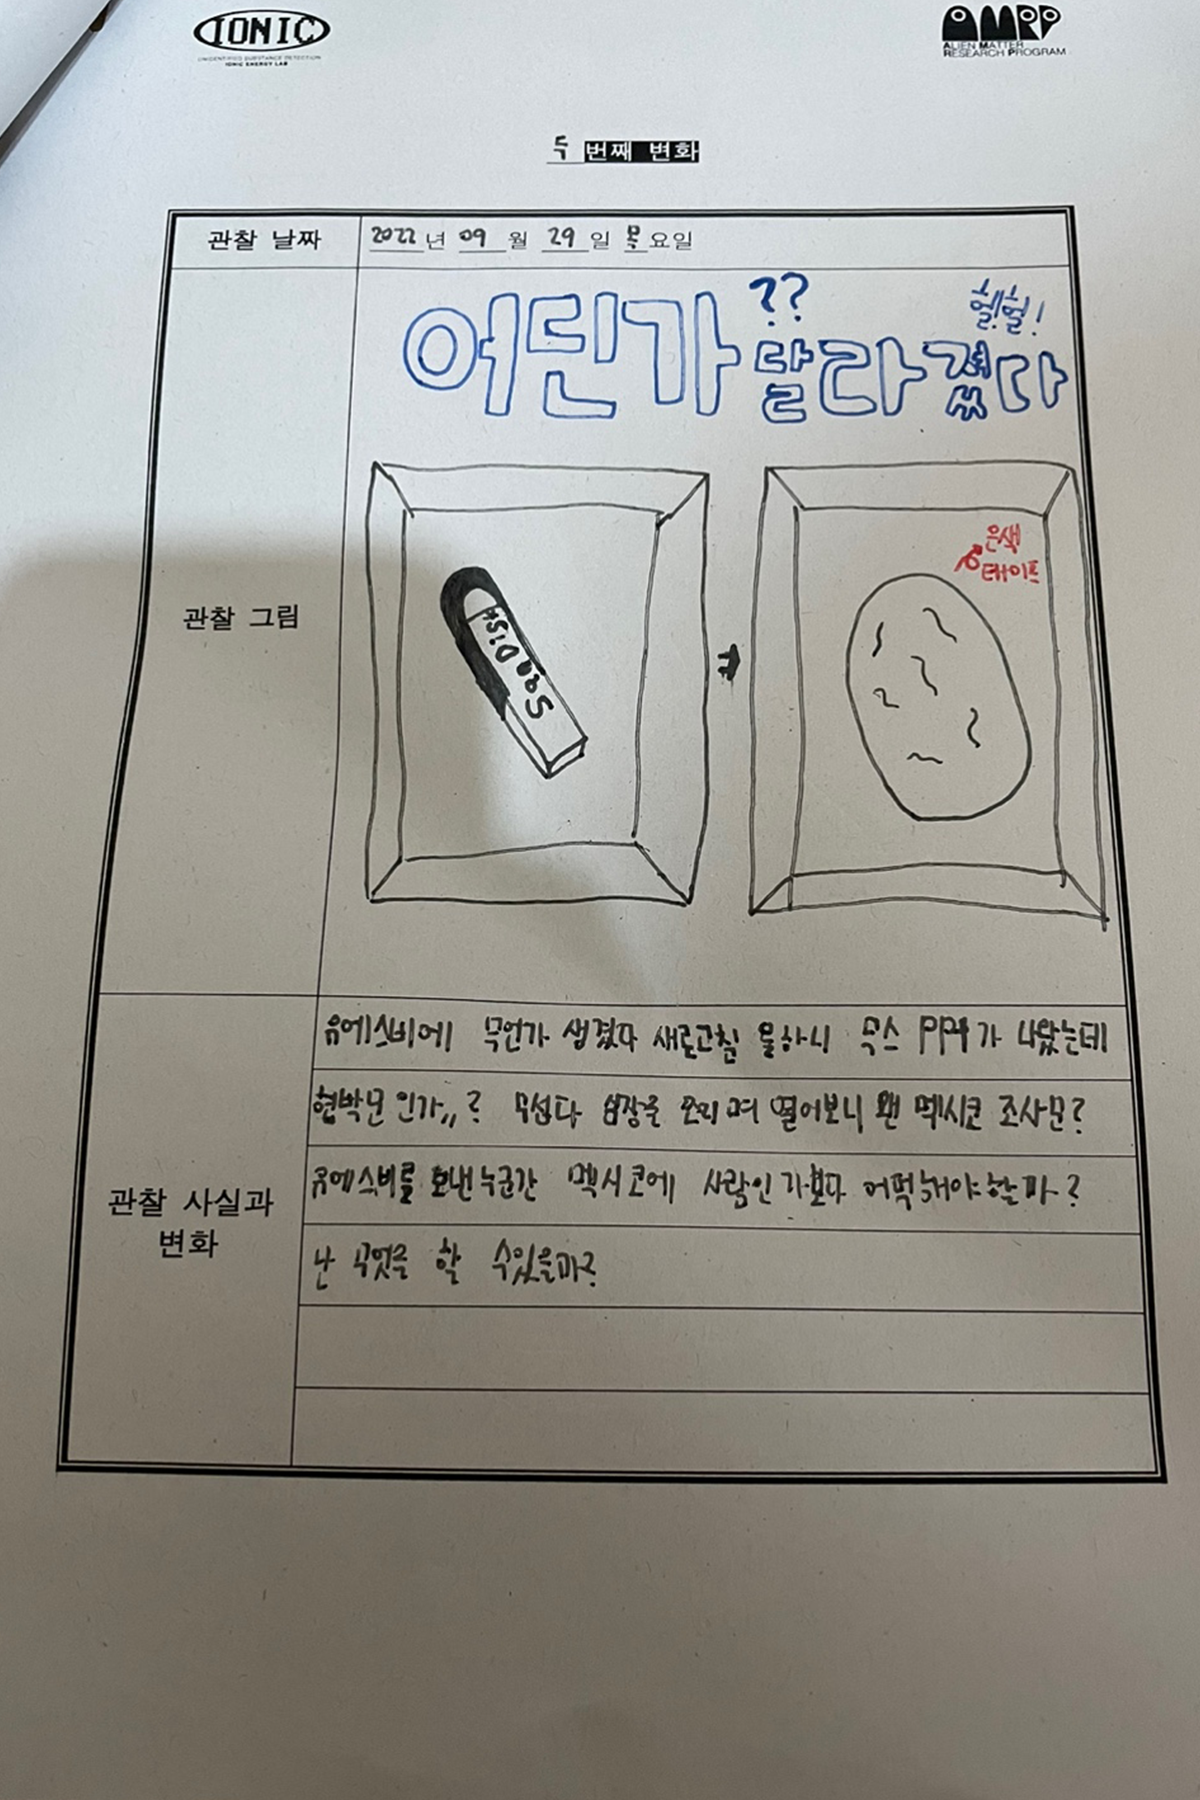 IONIC
UNIDENTIFIED SUBSTANCE DETECTION
IONIC ENERGY LAB
AMRP
ALIEN MATTER
RESEARCH PROGRAM
두 번째 변화
관찰 날짜
2022 년 09 월 29 일 목요일
관찰 그림
어딘가 ?? 달라졌다
헐!헐!
SanDisk
은색
테이프
관찰 사실과
변화
유에스비에 무언가 생겼다 새로고침 을하니 무스 PPt가 나왔는데
협박문 인가,,? 무섭다 심장을 조리며 열어보니 왠 멕시코 조사문?
유에스비를 보낸누군간 멕시코에 사람인가보다 어떡해야할까?
난 무엇을 할 수있을까?